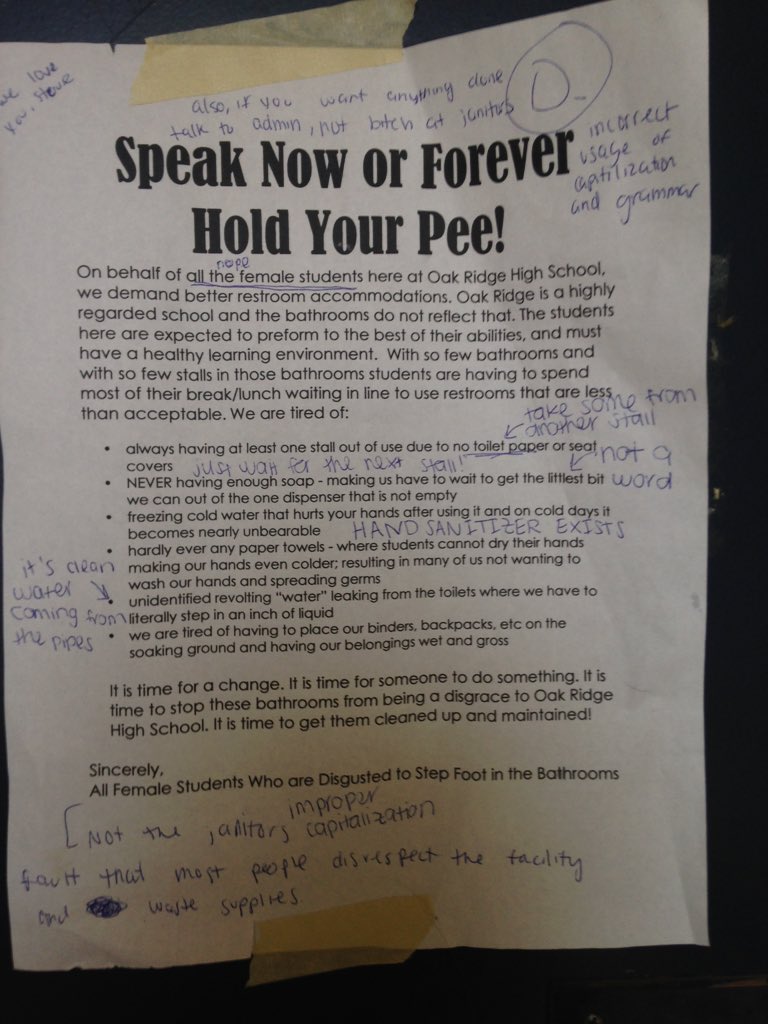 we love
you, steve
also, if you want anything done
talk to admin, not bitch at janitors
D-
incorrect
usage of
captilization
and grammar
Speak Now or Forever
Hold Your Pee!
nope
On behalf of all the female students here at Oak Ridge High School,
we demand better restroom accommodations. Oak Ridge is a highly
regarded school and the bathrooms do not reflect that. The students
here are expected to preform to the best of their abilities, and must
have a healthy learning environment. With so few bathrooms and
with so few stalls in those bathrooms students are having to spend
most of their break/lunch waiting in line to use restrooms that are less
than acceptable. We are tired of:
take some from
another stall
• always having at least one stall out of use due to no toilet paper or seat
covers
just wait for the next stall!
not a
word
• NEVER having enough soap - making us have to wait to get the littlest bit
we can out of the one dispenser that is not empty
• freezing cold water that hurts your hands after using it and on cold days it
becomes nearly unbearable
HAND SANITIZER EXISTS
• hardly ever any paper towels - where students cannot dry their hands
making our hands even colder; resulting in many of us not wanting to
wash our hands and spreading germs
it's clean
water
coming from
the pipes
• unidentified revolting "water" leaking from the toilets where we have to
literally step in an inch of liquid
• we are tired of having to place our binders, backpacks, etc on the
soaking ground and having our belongings wet and gross
It is time for a change. It is time for someone to do something. It is
time to stop these bathrooms from being a disgrace to Oak Ridge
High School. It is time to get them cleaned up and maintained!
Sincerely,
All Female Students Who are Disgusted to Step Foot in the Bathrooms
improper
capitalization
Not the janitors
fault that most people disrespect the facility
and waste supplies.